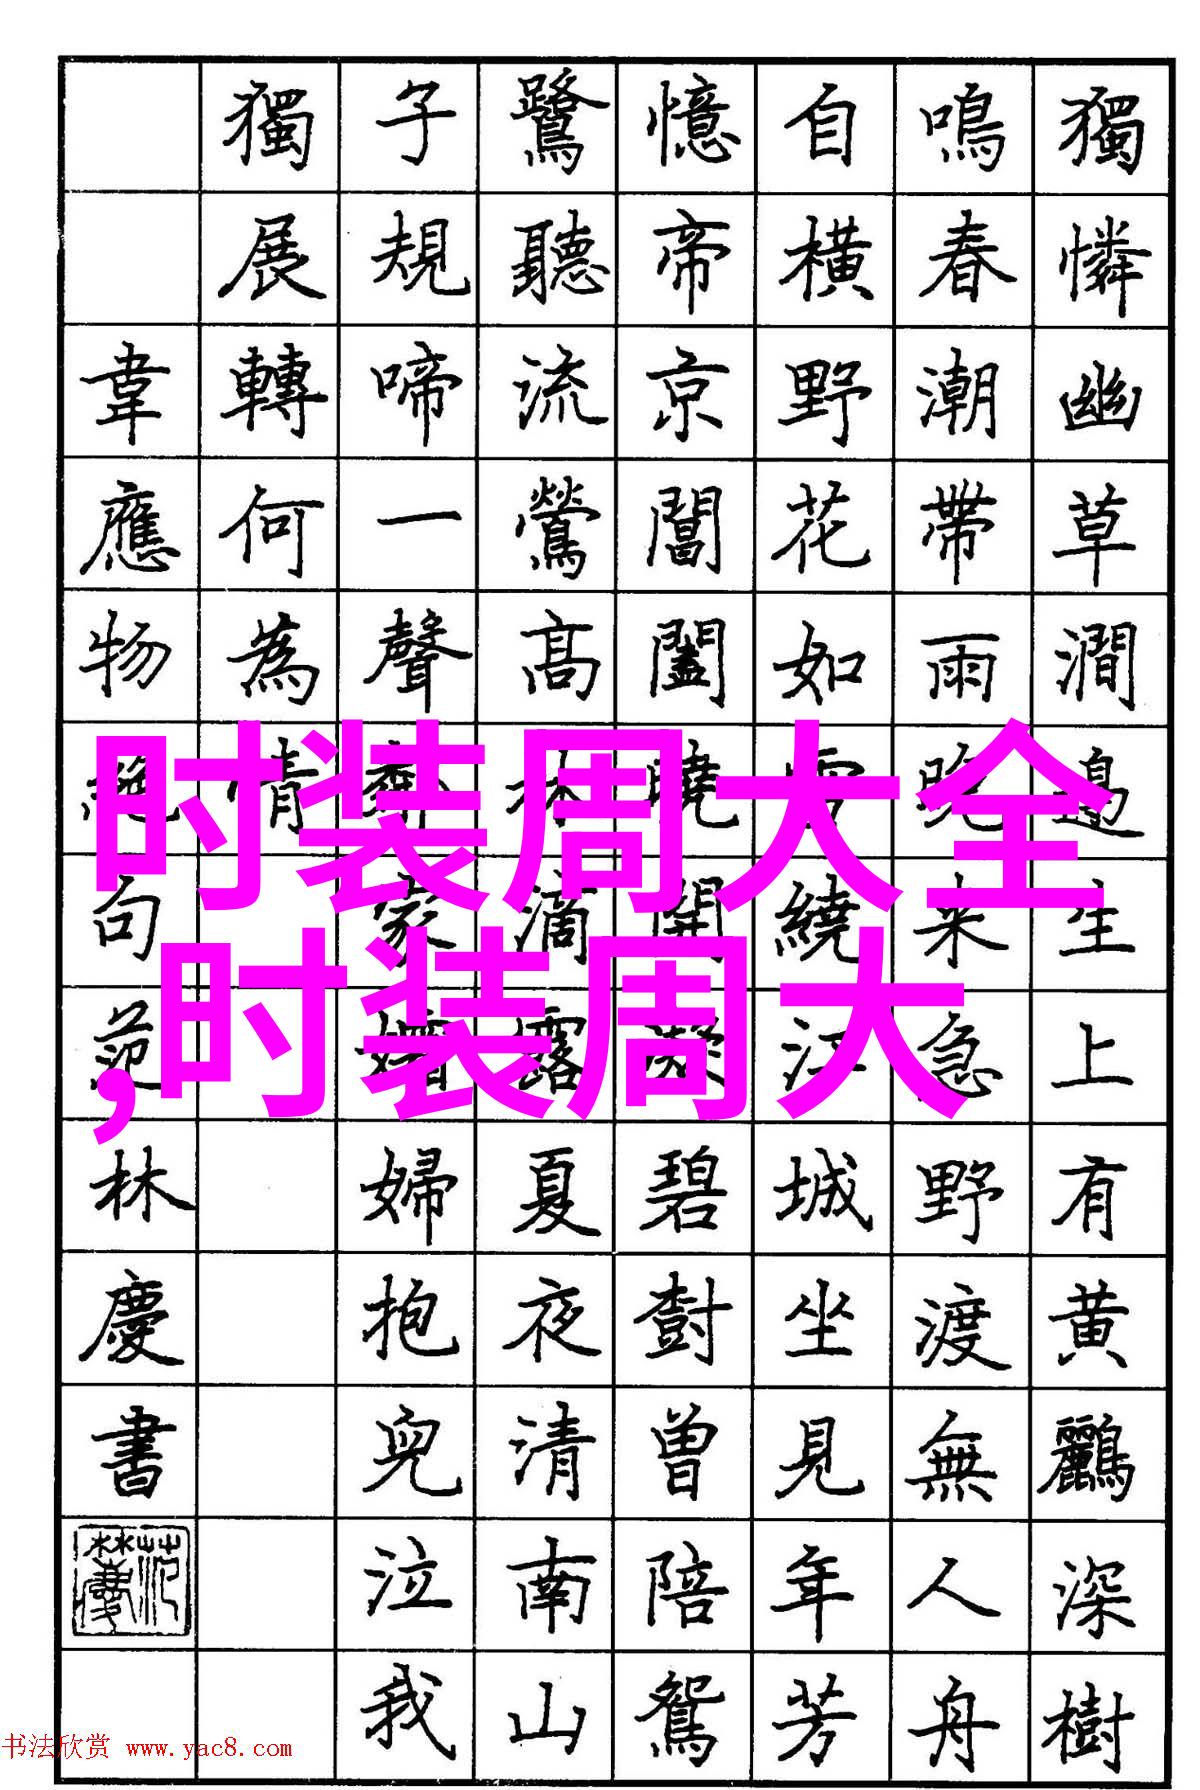 獨憐幽草澗邊生上有黄鸝深樹
鳴春潮帶雨晚来急野渡無人舟
自橫野花如雪繞江城坐見年芳
憶帝京閶闔曉開凝碧樹曾陪鴛
鷺聽流鶯高林滴露夏夜清南山
子規啼一聲鄰家孀婦抱兒泣我
獨展轉何為情
韋應物絕句范林慶書
时装周大全
,时装周大
书法欣赏 www.yac8.com